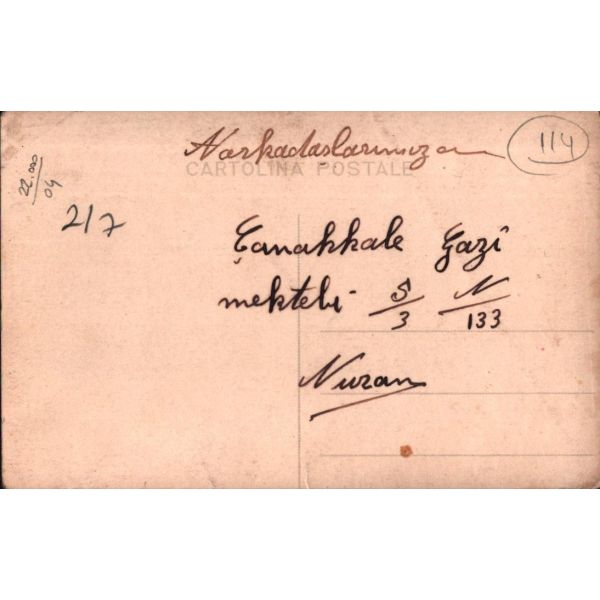 Narkadaşlarımıza
114
CARTOLINA POSTALE
22.000
04
217
Çanakkale Gazi
mektebi S/3 N/133
Nuran